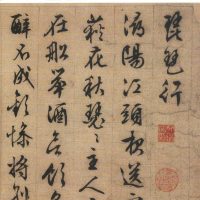 琵琶行
潯陽江頭夜送
荻花秋瑟〻主人
在船舉酒欲飲
醉不成歡慘將別